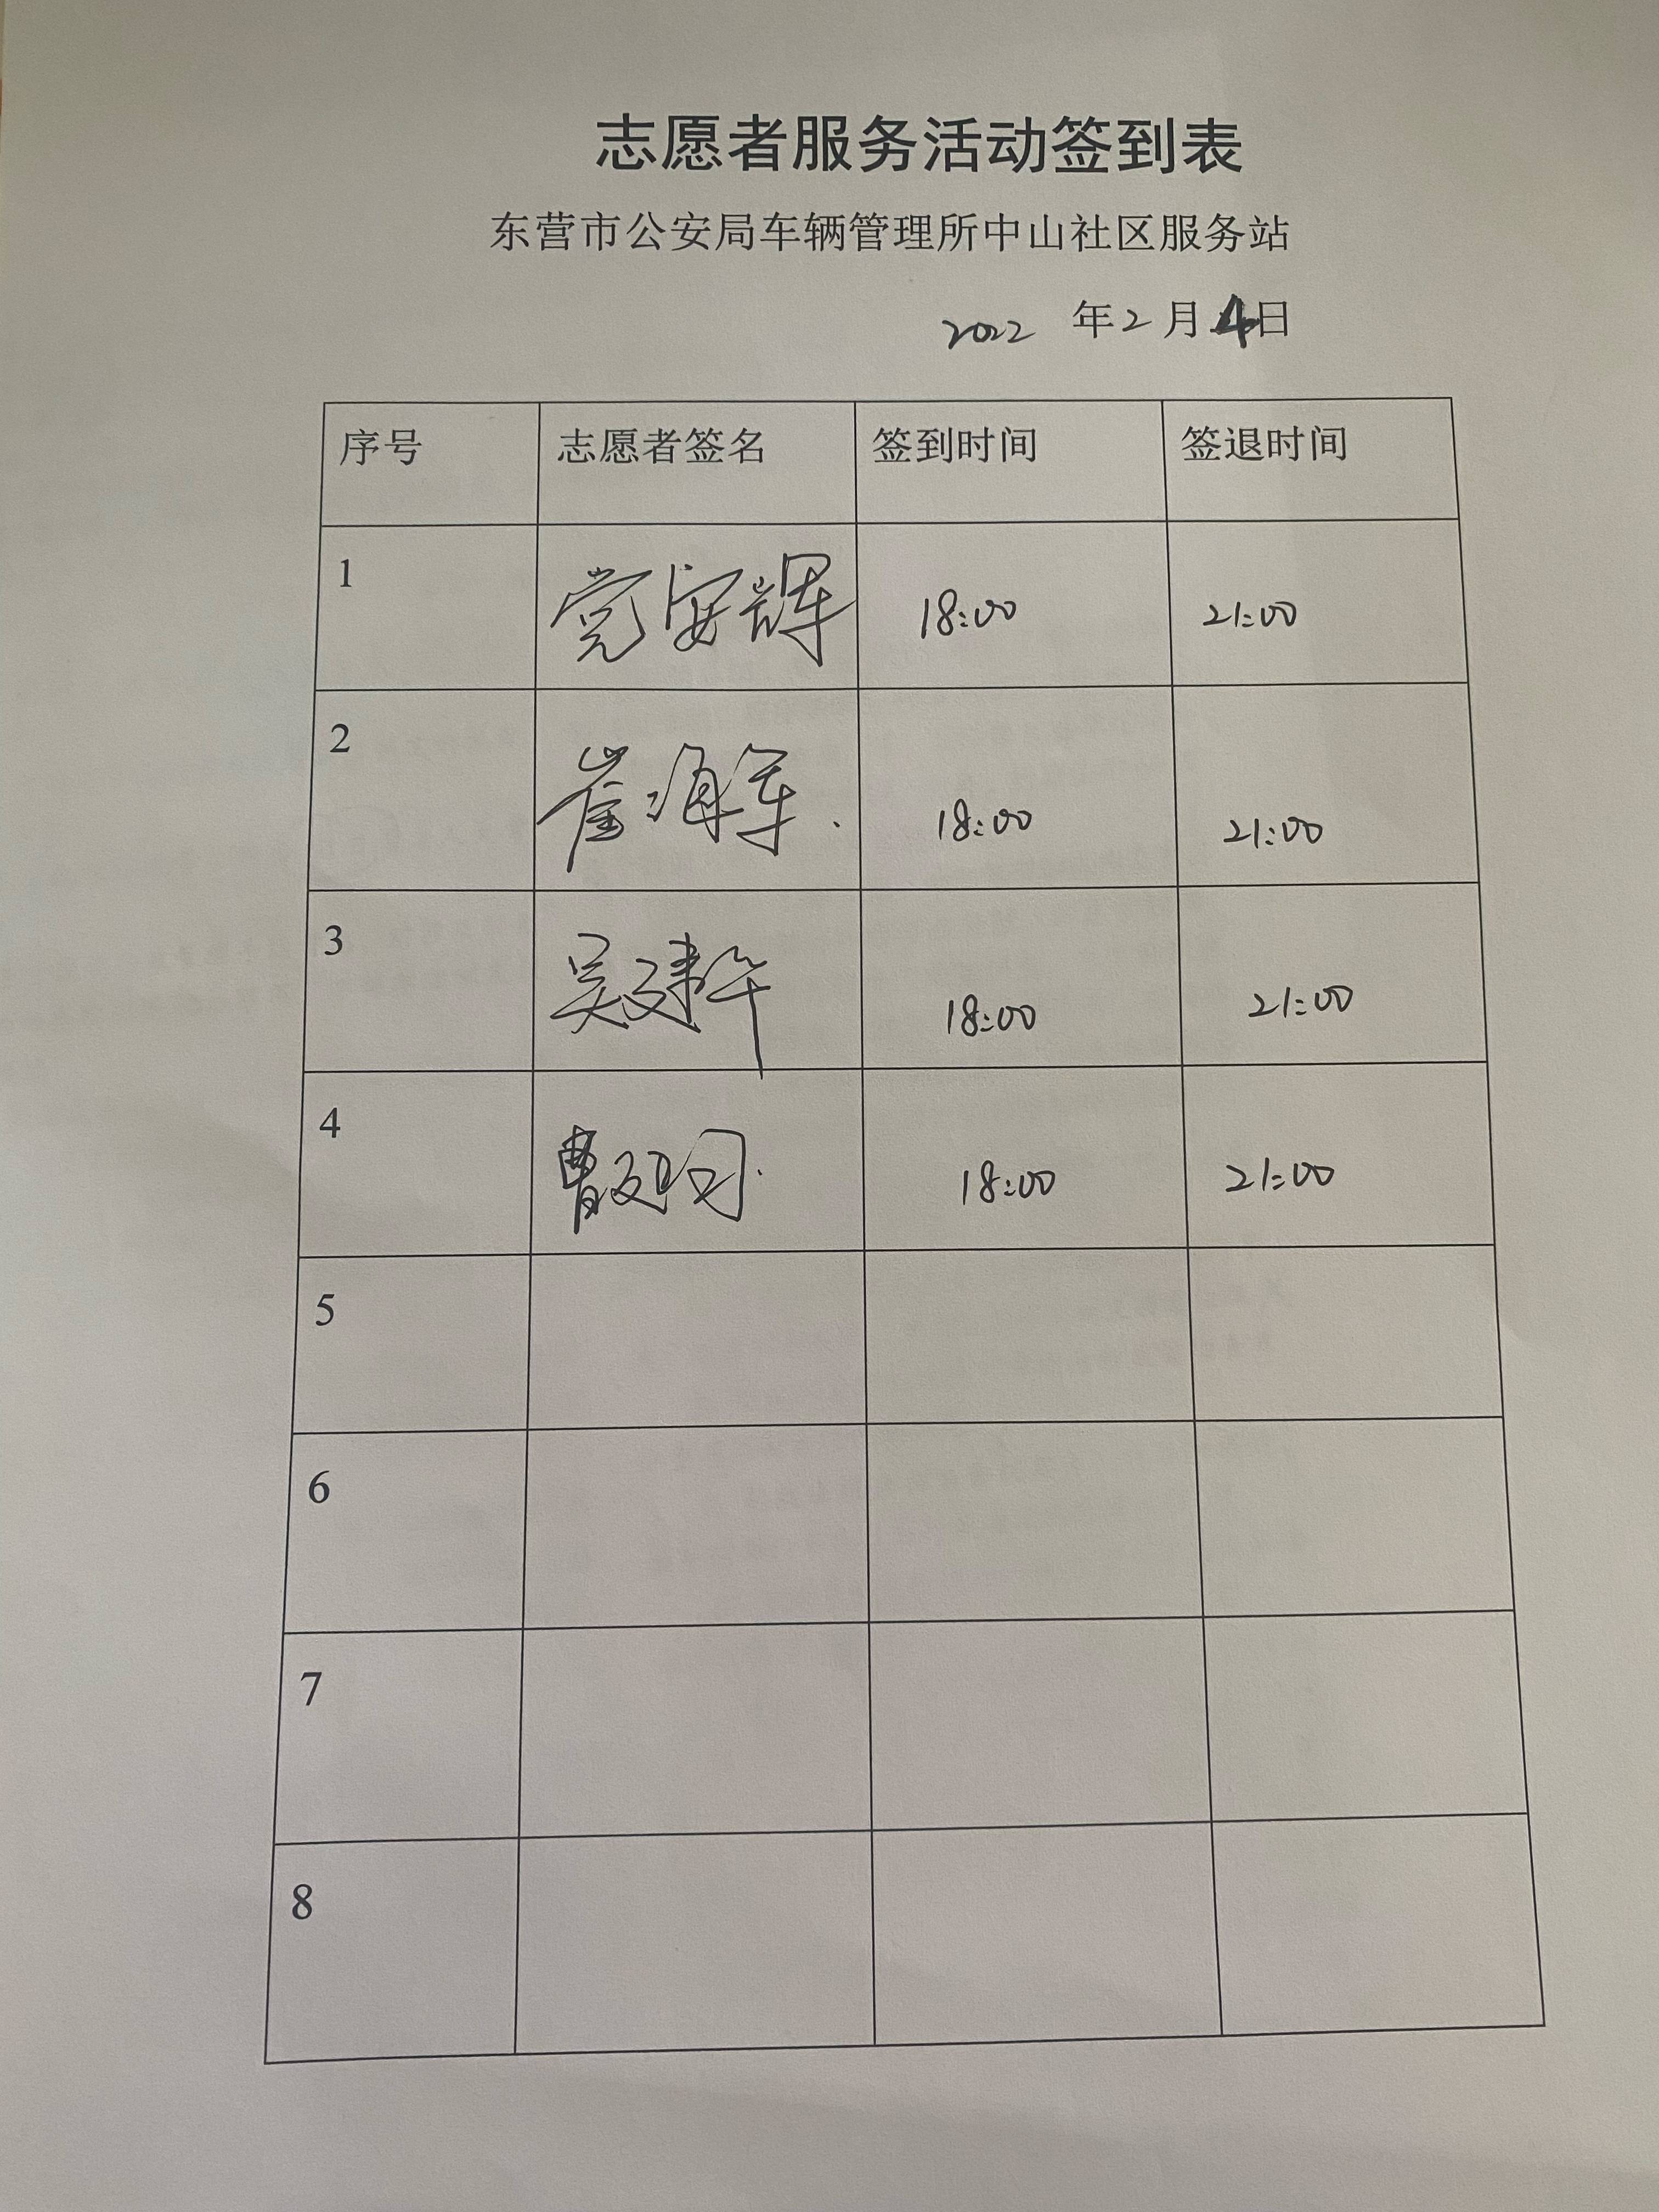 志愿者服务活动签到表
东营市公安局车辆管理所中山社区服务站
2022 年 2 月 4 日
序号 志愿者签名 签到时间 签退时间
1 党安辉 18:00 21:00
2 崔海军 18:00 21:00
3 吴建华 18:00 21:00
4 曹 18:00 21:00
5
6
7
8